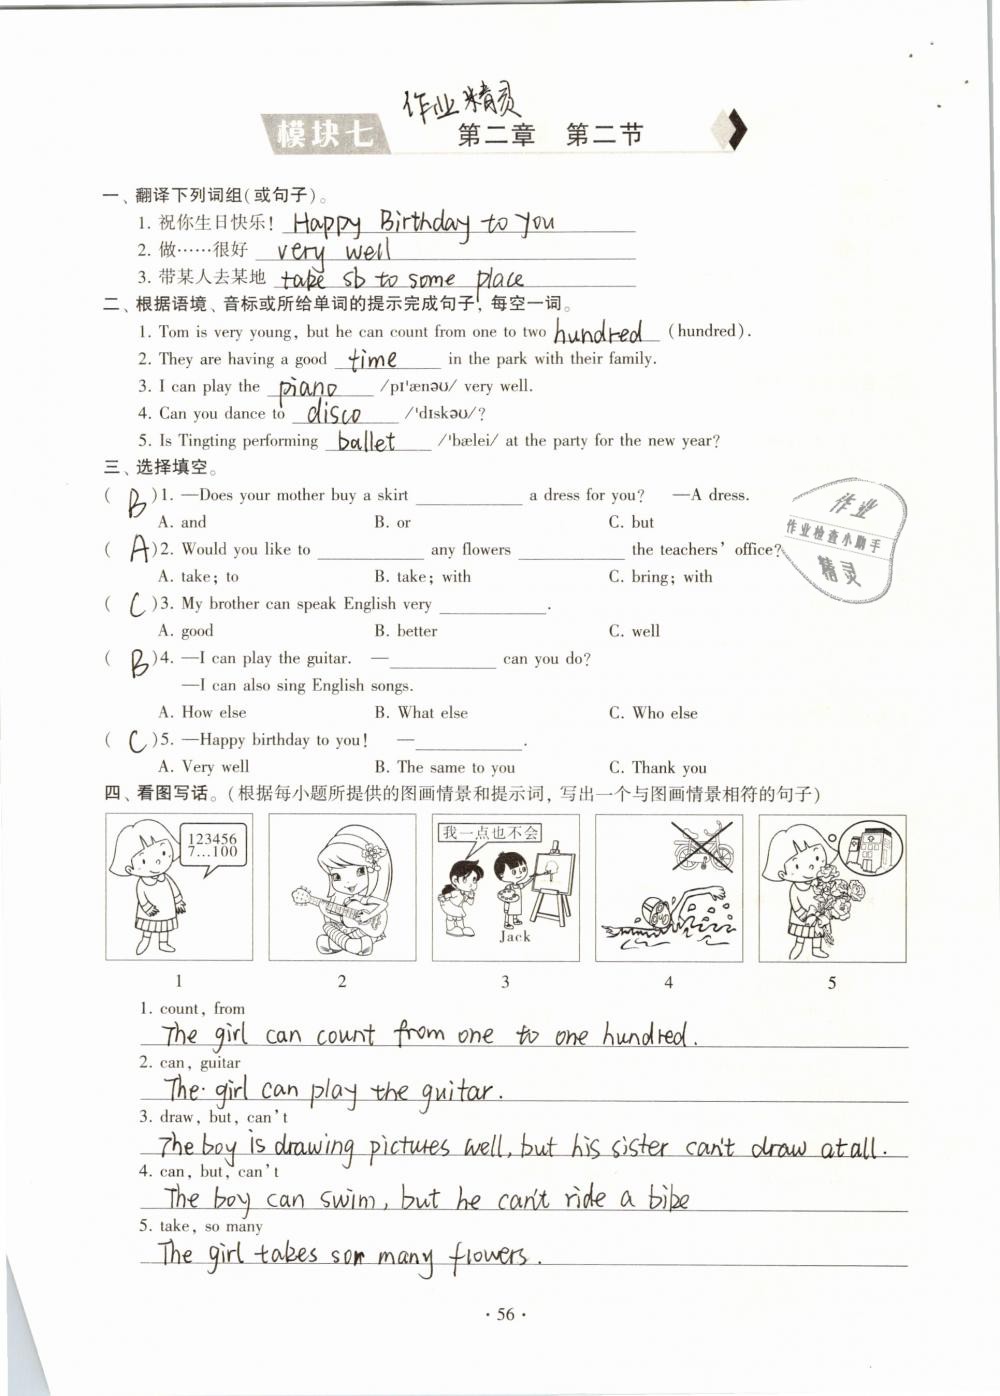 作业精灵
模块七 第二章 第二节
一、翻译下列词组(或句子)。
1. 祝你生日快乐! Happy Birthday to you
2. 做……很好 very well
3. 带某人去某地 take sb to some place
二、根据语境、音标或所给单词的提示完成句子,每空一词。
1. Tom is very young, but he can count from one to two hundred (hundred).
2. They are having a good time in the park with their family.
3. I can play the piano /pɪ'ænəʊ/ very well.
4. Can you dance to disco /'dɪskəʊ/?
5. Is Tingting performing ballet /'bælei/ at the party for the new year?
三、选择填空。
( B )1. —Does your mother buy a skirt ________ a dress for you? —A dress.
A. and B. or C. but
( A )2. Would you like to ________ any flowers ________ the teachers' office?
A. take; to B. take; with C. bring; with
( C )3. My brother can speak English very ________.
A. good B. better C. well
( B )4. —I can play the guitar. —________ can you do?
—I can also sing English songs.
A. How else B. What else C. Who else
( C )5. —Happy birthday to you! —________.
A. Very well B. The same to you C. Thank you
作业
作业检查小助手
精灵
四、看图写话。(根据每小题所提供的图画情景和提示词,写出一个与图画情景相符的句子)
123456
7...100
我一点也不会
Jack
1 2 3 4 5
1. count, from
The girl can count from one to one hundred.
2. can, guitar
The girl can play the guitar.
3. draw, but, can't
The boy is drawing pictures well, but his sister can't draw at all.
4. can, but, can't
The boy can swim, but he can't ride a bike
5. take, so many
The girl takes so many flowers.
· 56 ·